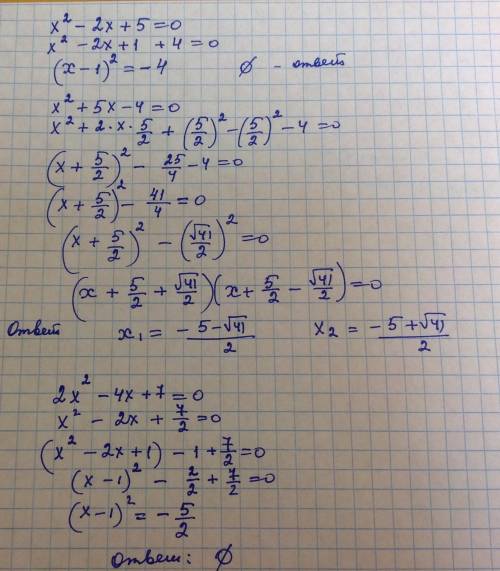 x² - 2x + 5 = 0
x² - 2x + 1 + 4 = 0
(x - 1)² = -4 ∅ - ответ
x² + 5x - 4 = 0
x² + 2·x·5/2 + (5/2)² - (5/2)² - 4 = 0
(x + 5/2)² - 25/4 - 4 = 0
(x + 5/2)² - 41/4 = 0
(x + 5/2)² - (√41/2)² = 0
(x + 5/2 + √41/2)(x + 5/2 - √41/2) = 0
Ответ x₁ = (-5-√41)/2 x₂ = (-5+√41)/2
2x² - 4x + 7 = 0
x² - 2x + 7/2 = 0
(x² - 2x + 1) - 1 + 7/2 = 0
(x - 1)² - 2/2 + 7/2 = 0
(x - 1)² = - 5/2
Ответ: ∅